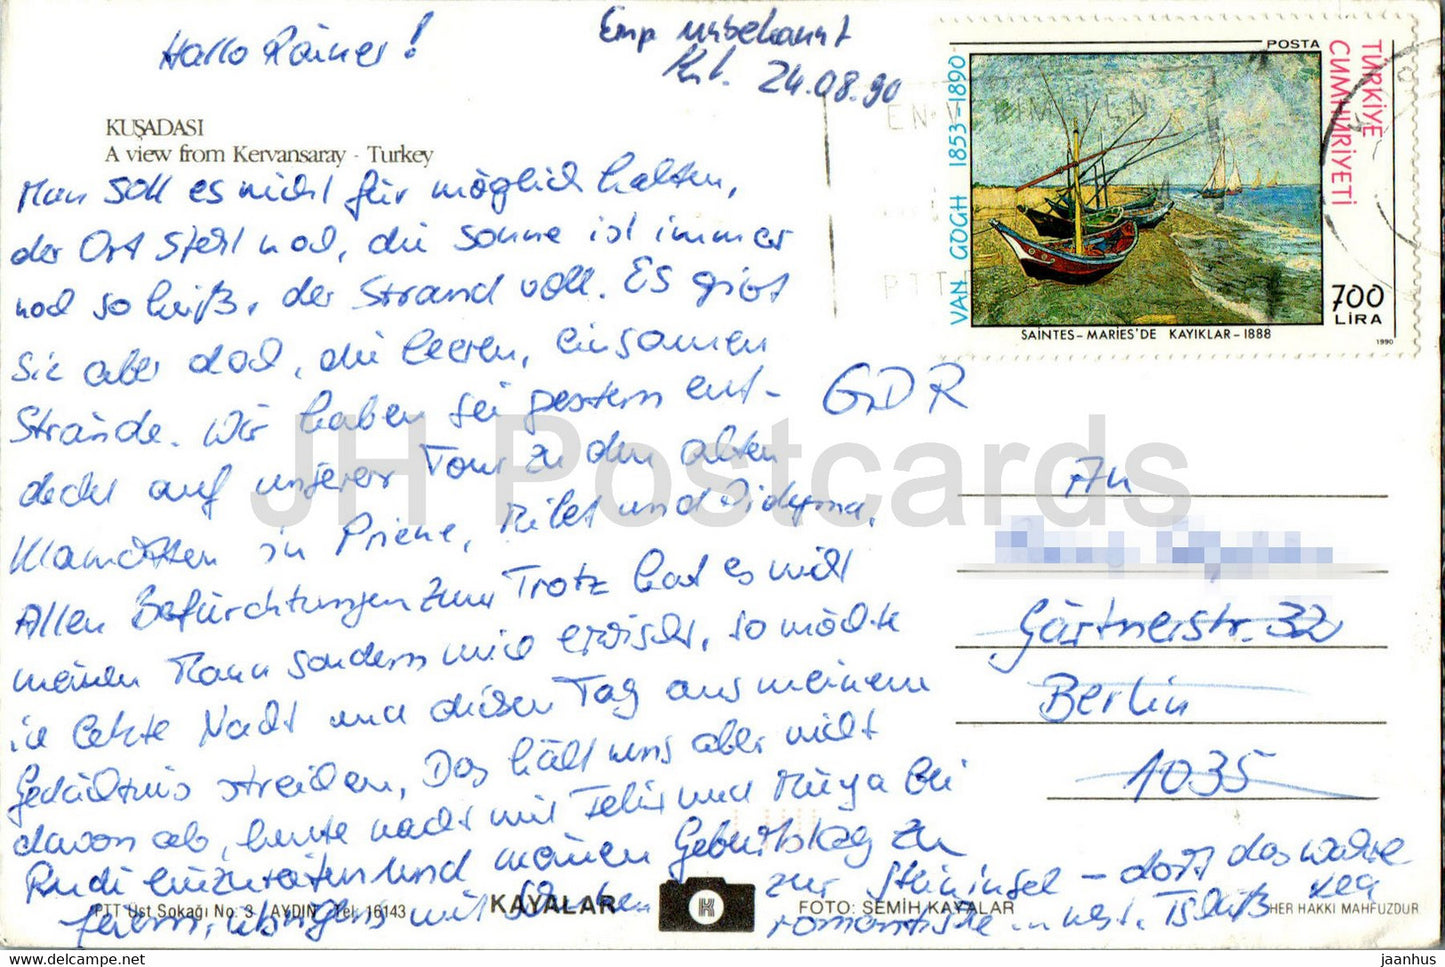 Hallo Rainer!
Emp unbekannt
24.08.90
KUŞADASI
A view from Kervansaray - Turkey
POSTA
TÜRKİYE
CUMHURİYETİ
VAN GOGH 1853-1890
700
LİRA
SAINTES-MARIES'DE KAYIKLAR-1888
1990
PTT
Man soll es nicht für möglich halten,
der Ort steht noch, die Sonne ist immer
noch so heiß, der Strand voll. Es gibt
sie aber doch, die leeren, einsamen
Strände. Wir haben sie gestern ent-
deckt auf unserer Tour zu den alten
Klamotten in Priene, Milet und Didyma.
Allen Befürchtungen zum Trotz hat es nicht
meinen Mann sondern mich erwischt, so möchte
ich letzte Nacht und diesen Tag aus meinem
Gedächtnis streichen. Das hält uns aber nicht
davon ab, heute nacht mit und bei
Rudi einzureiten und meinen Geburtstag zu
feiern, übrigens mit
zur - dort das wahre
romantische
GDR
An
Gärtnerstr. 32
Berlin
1035
PTT Üst Sokağı No: 3 AYDIN Tel: 16143
KAYALAR
K
FOTO: SEMİH KAYALAR
HER HAKKI MAHFUZDUR
JH Postcards
jaanhus @ www.hippostcard.com